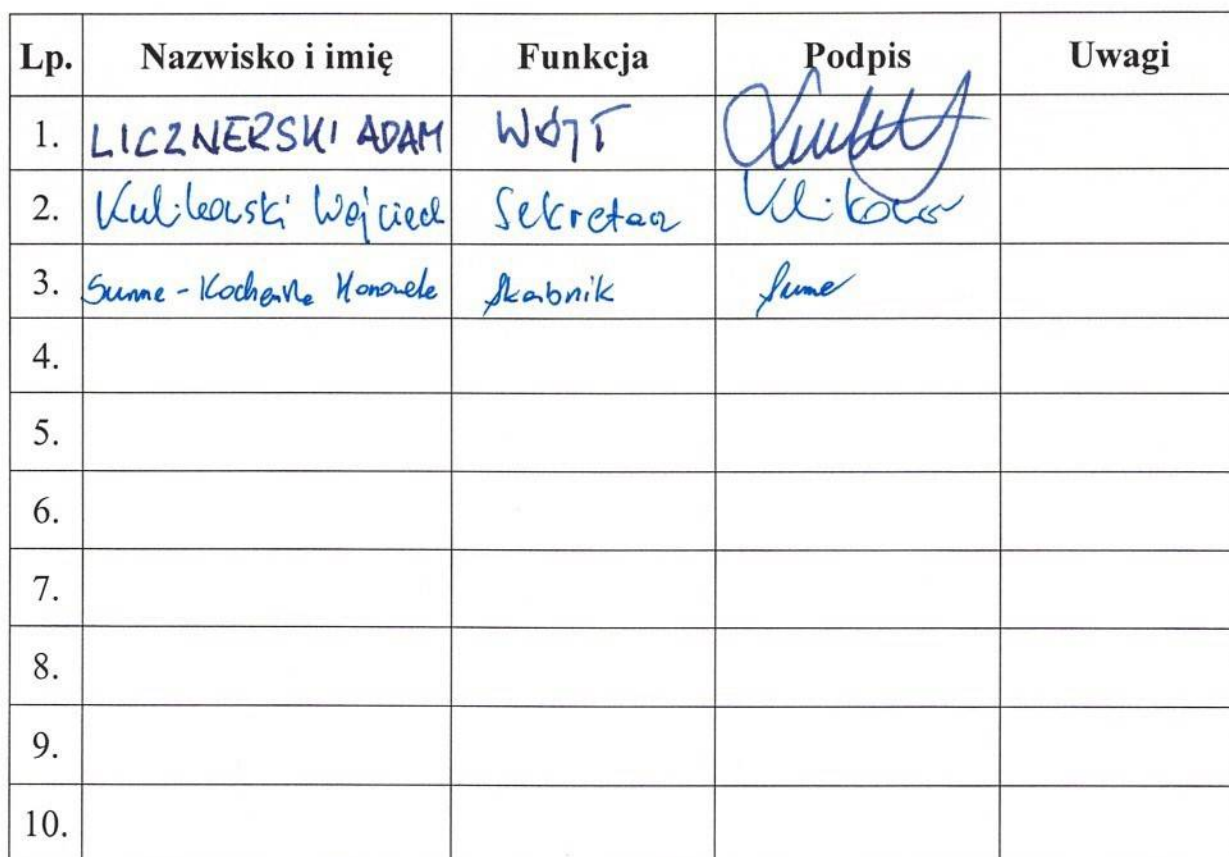 Lp. Nazwisko i imię Funkcja Podpis Uwagi
1. LICZNERSKI ADAM WÓJT
2. Kulikowski Wojciech Sekretarz
3. Skarbnik
4.
5.
6.
7.
8.
9.
10.